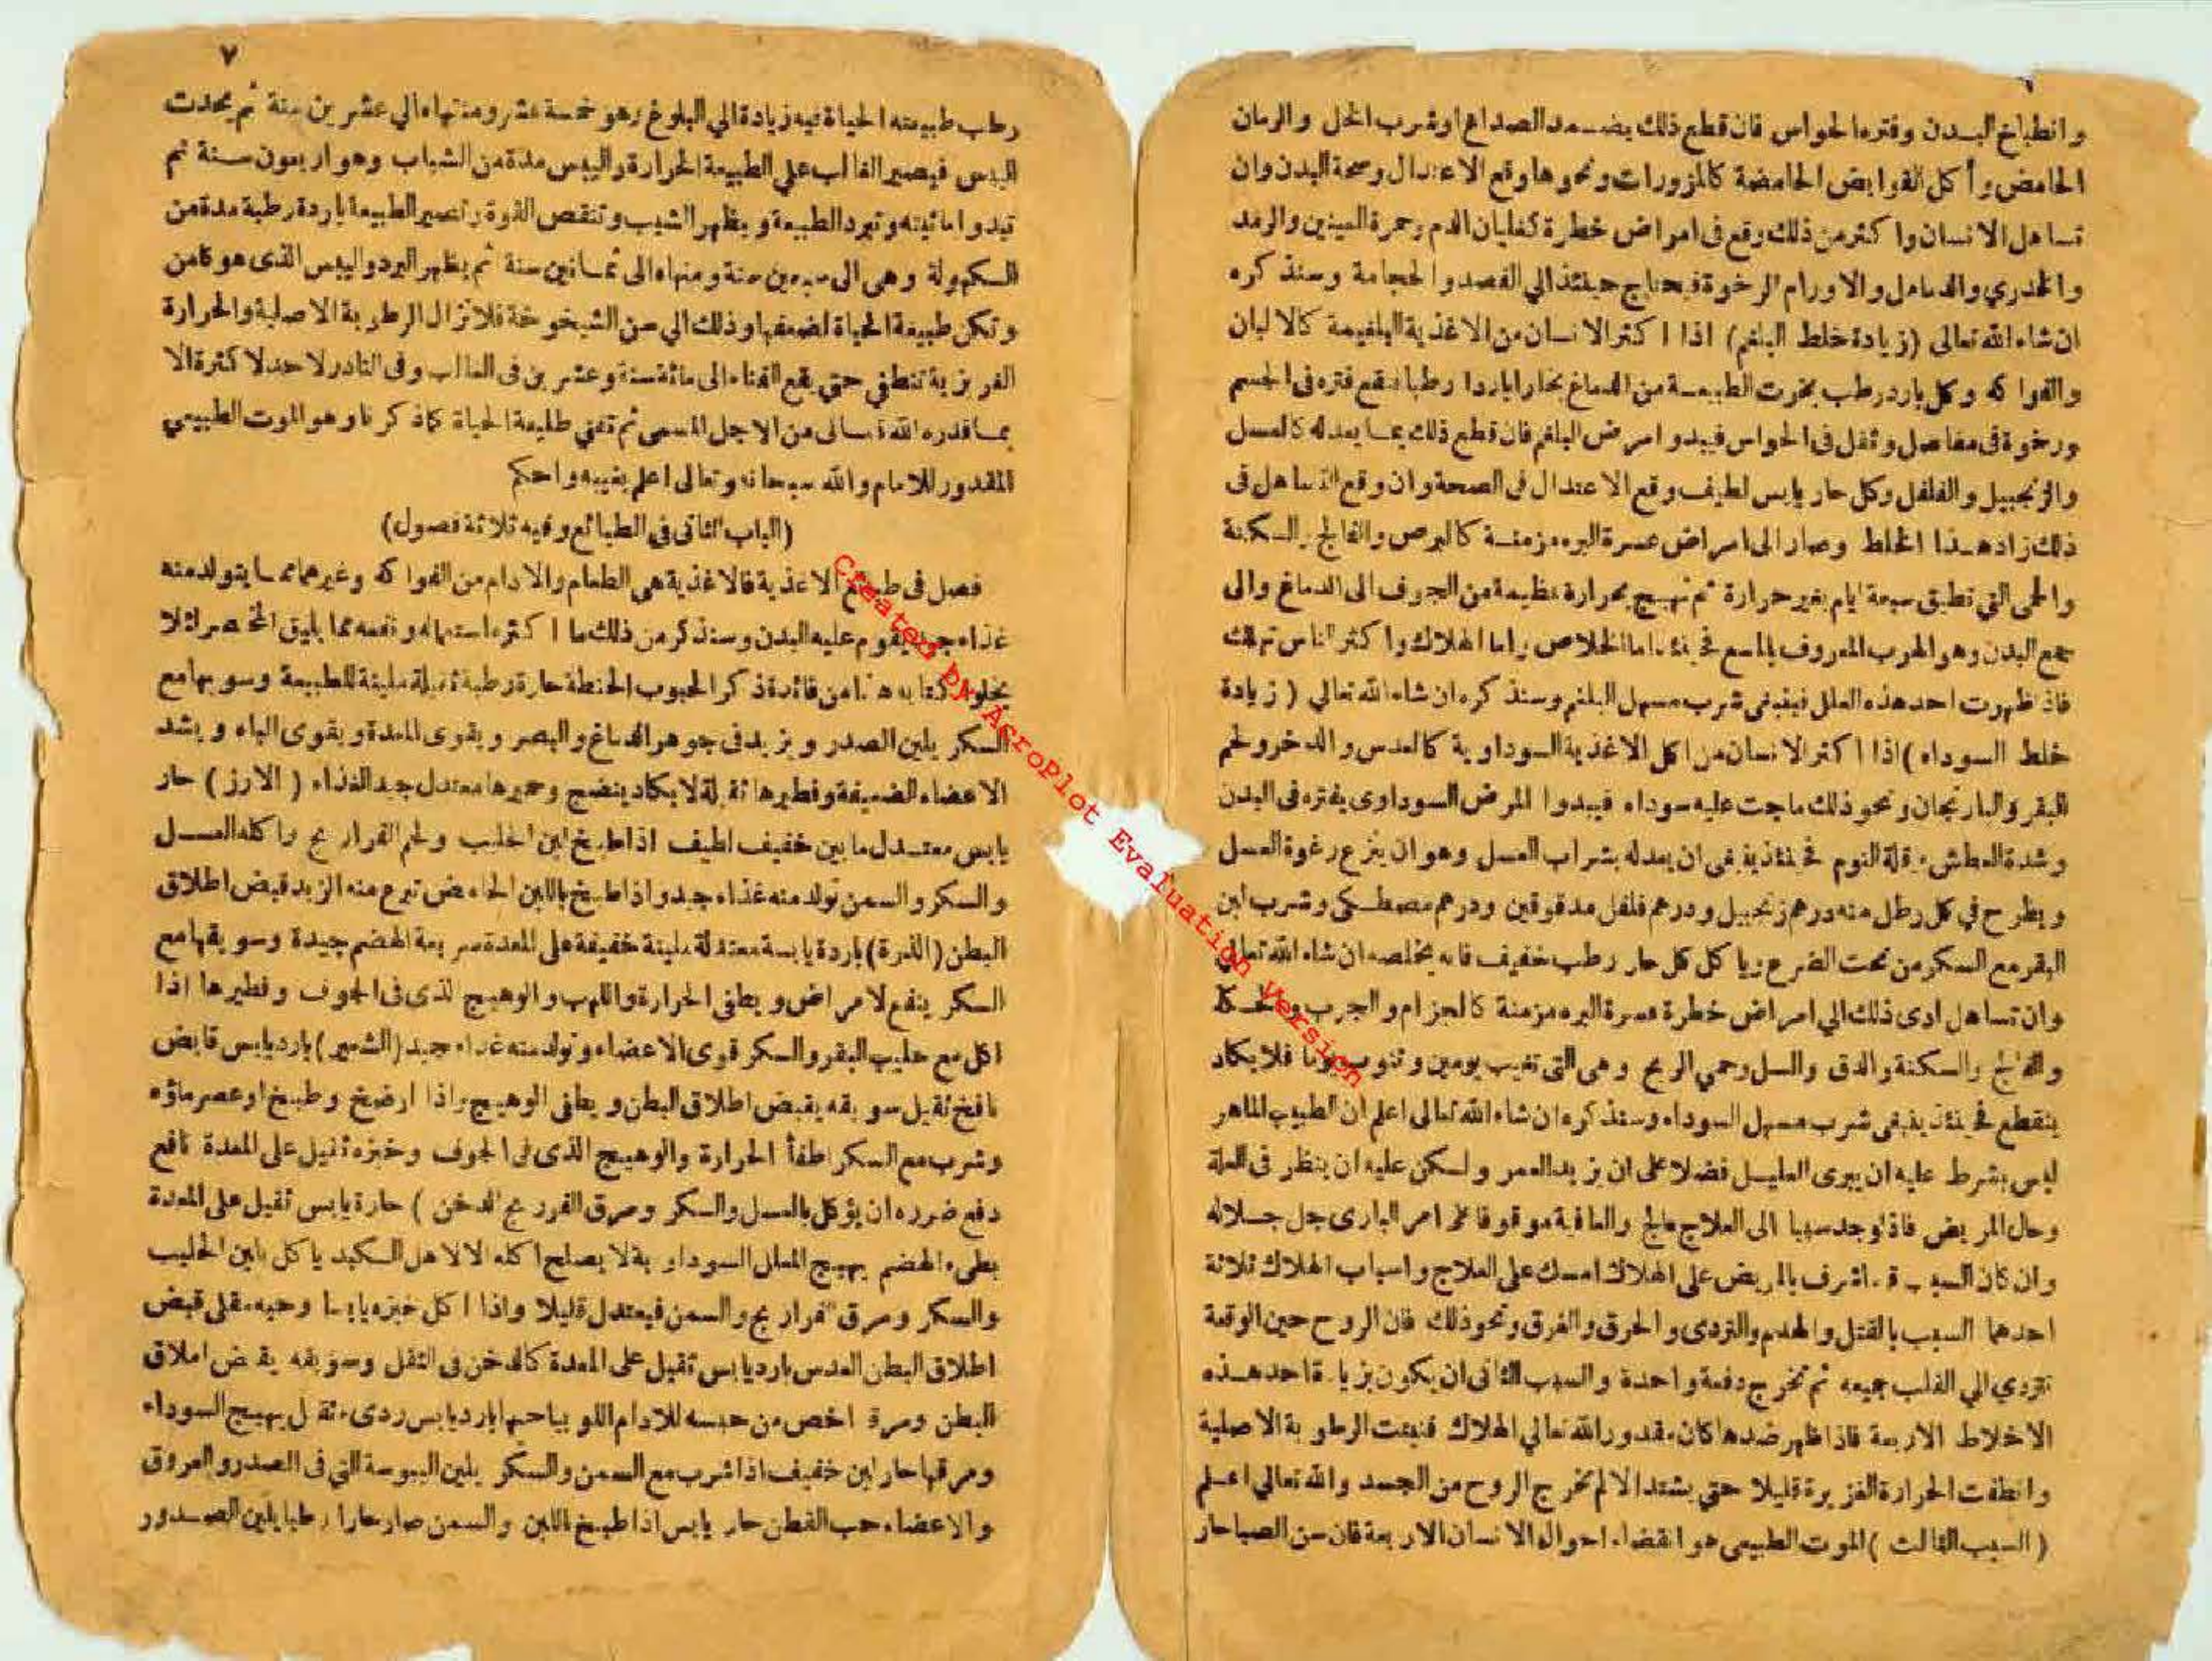 ٦
وانطباخ البدن وفترة الحواس فان قطع ذلك بضد الصداع اوشرب الخل والرمان
الحامض وأكل القوابض الحامضة كالمزورات ونحوها وقع الاعتدال وصحة البدن وان
تساهل الانسان واكثر من ذلك وقع في امراض خطرة كغليان الدم وحمرة العينين والرمد
والجدري والدمامل والاورام الرخوة فيحتاج حينئذ الى الفصد والحجامة وسنذكره
ان شاء الله تعالى (زيادة خلط البلغم) اذا اكثر الانسان من الاغذية البلغمية كالالبان
والفواكه وكل بارد رطب بخرت الطبيعة من الدماغ بخارا باردا رطبا فيقع فتره في الجسم
ورخوة في مفاصل وثقل في الحواس فيبدو امرض البلغم فان قطع ذلك بما يعدله كالعسل
والزنجبيل والفلفل وكل حار يابس لطيف وقع الاعتدال في الصحة وان وقع التساهل في
ذلك زاد هذا الخلط وصار الى امراض عسرة البرء مزمنة كالبرص والفالج والسكتة
والحمى التي تطبق سبعة ايام بغير حرارة ثم تهيج بحرارة عظيمة من الجوف الى الدماغ والى
جمع البدن وهو الحرب المعروف بالمسع فحينئذ اما الخلاص واما الهلاك واكثر الناس تهلك
فاذا ظهرت احد هذه العلل فينبغي شرب مسهل البلغم وسنذكره ان شاء الله تعالى (زيادة
خلط السوداء) اذا اكثر الانسان من اكل الاغذية السوداوية كالعدس والدخن ولحم
البقر والبارنجان ونحو ذلك ماجت عليه سوداء فيبدوا المرض السوداوى بفتره في البدن
وشدة العطش وقلة النوم فحينئذ ينبغى ان يعدله بشراب العسل وهو ان ينزع رغوة العسل
ويطرح في كل رطل منه درهم زنجبيل ودرهم فلفل مدقوقين ودرهم مصطكى وشرب لبن
البقر مع السكر من تحت الضرع ويا كل كل حار رطب خفيف فانه يخلصه ان شاء الله تعالى
وان تساهل ادى ذلك الى امراض خطرة عسرة البره مزمنة كالجزام والجرب والحكة
والفالج والسكتة والدق والسل وحمي الربع وهى التى تغيب يومين وتنوب يوما فلا يكاد
ينقطع فحينئذ ينبغى شرب مسهل السوداء وسنذكره ان شاء الله تعالى اعلم ان الطبيب الماهر
ليس بشرط عليه ان يبرى العليل فضلا على ان يزيد العمر ولكن عليه ان ينظر في العلة
وحال المريض فاذا وجد سببا الى العلاج عالج والعافية موقوفا على امر البارى جل جلاله
وان كان السبب قد اشرف بالمريض على الهلاك امسك على العلاج واسباب الهلاك ثلاثة
احدهما السبب بالقتل والهدم والتردى والحرق والغرق ونحو ذلك فان الروح حين الوقعة
تتردي الي القلب جميعه ثم تخرج دفعة واحدة والسبب الثانى ان يكون بزيادة احد هذه
الاخلاط الاربعة فاذا ظهر ضدها كان مقدور الله تعالي الهلاك فنيئت الرطوبة الاصلية
وانطفت الحرارة الغزيرة قليلا حتى يشتد الالم تخرج الروح من الجسد والله تعالي اعلم
(السبب الثالث) الموت الطبيعى هو انقضاء احوال الانسان الاربعة فان سن الصبا حار
٧
رطب طبيعته الحياة فيه زيادة الي البلوغ وهو خمسة عشر ومنتهاه الي عشرين سنة ثم يحدث
اليبس فيصير الغالب علي الطبيعة الحرارة واليبس مدة من الشباب وهو اربعون سنة ثم
تبدو امائيته وتبرد الطبيعة ويظهر الشيب وتنقص القوة وتصير الطبيعة باردة رطبة مدة من
الكهولة وهى الى سبعين سنة ومنهاه الى ثمانين سنة ثم يظهر البرد واليبس الذى هو كامن
وتكن طبيعة الحياة لضعفها وذلك الي سن الشيخوخة فلا تزال الرطوبة الاصلية والحرارة
الغريزية تنطفي حتى يقع الفناء الى مائة سنة وعشرين في الغالب وفى النادر لا حد لا كثرة الا
بما قدره الله تعالى من الاجل المسمى ثم تفني طليعة الحياة كما ذكرنا وهو الموت الطبيعي
المقدور للامام والله سبحانه وتعالى اعلم بغيبه واحكم
(الباب الثانى في الطبائع وفيه ثلاثة فصول)
فصل فى طبائع الاغذية فالاغذية هي الطعام والادام من الفواكه وغيرهما مما يتولد منه
غذاء جيد يقوم عليه البدن وسنذكر من ذلك ما اكثر استعماله ونفعه مما يليق المختصر لئلا
يخلو كتابه هذا من فائدة ذكر الحبوب الحنطة حارة رطبة ثقيلة ملينة للطبيعة وسويها مع
السكر يلين الصدر ويزيد فى جوهر الدماغ والبصر ويقوى المعدة ويقوى الباه ويشد
الاعضاء الضعيفة وفطيرها ثقيلة لا يكاد ينضج وخميرها معتدل جيد الغذاء (الارز) حار
يابس معتدل ما بين خفيف لطيف اذا طبخ لبن الحليب ولحم الفراريج واكله العسل
والسكر والسمن تولد منه غذاء جيد واذا طبخ باللبن الحامض تبرع منه الزبد قبض اطلاق
البطن (الذرة) باردة يابسة معتدلة ملينة خفيفة على المعدة سريعة الهضم جيدة وسويقها مع
السكر ينفع لامراض ويطفى الحرارة واللهب والوهيج الذى فى الجوف وفطيرها اذا
اكل مع حليب البقر والسكر قوى الاعضاء وتولد منه غذاء جيد (الشعير) بارد يابس قابض
نافخ ثقيل سويقه يقبض اطلاق البطن ويطفى الوهيج واذا ارضخ وطبخ او عصر ماؤه
وشرب مع السكر اطفأ الحرارة والوهيج الذى فى الجوف وخبزه ثقيل على المعدة نافع
دفع ضرره ان يؤكل بالعسل والسكر ومرق الفرريج الدخن) حارة يابس ثقيل على المعدة
بطىء الهضم يهيج العلل السوداوية لا يصلح اكله الا لاهل الكبد ياكل بلبن الحليب
والسكر ومرق الفراريج والسمن فيعتدل قليلا واذا اكل خبزه يابسا وحبه مقلى قبض
اطلاق البطن العدس بارد يابس ثقيل على المعدة كالدخن فى الثقل وسويقه يقبض اطلاق
البطن ومرة اخص من حبسه للادام اللوبيا حبها بارد يابس ردىء ثقيل يهيج السوداء
ومرقها حار لين خفيف اذا شرب مع السمن والسكر يلين اليبوسة التى فى الصدر والعروق
والاعضاء حب القطن حار يابس اذا طبخ باللبن والسمن صار حارا رطبا يلين الصدور
Created by AcroPlot Evaluation Version